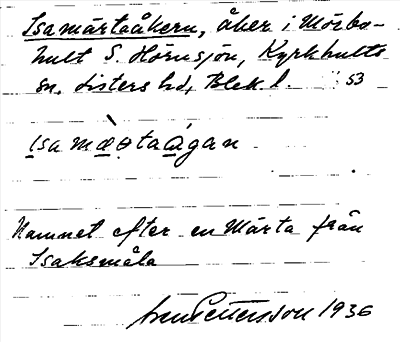 Isamärtaåkern, åker i Mörbo-
hult S. Hörnsjön, Kyrkhults
sn, Listers hd, Blek. l. 53
ɪsa mæ̀ɵtaágan
Namnet efter en Märta från
Isaksmåla
Pettersson 1936